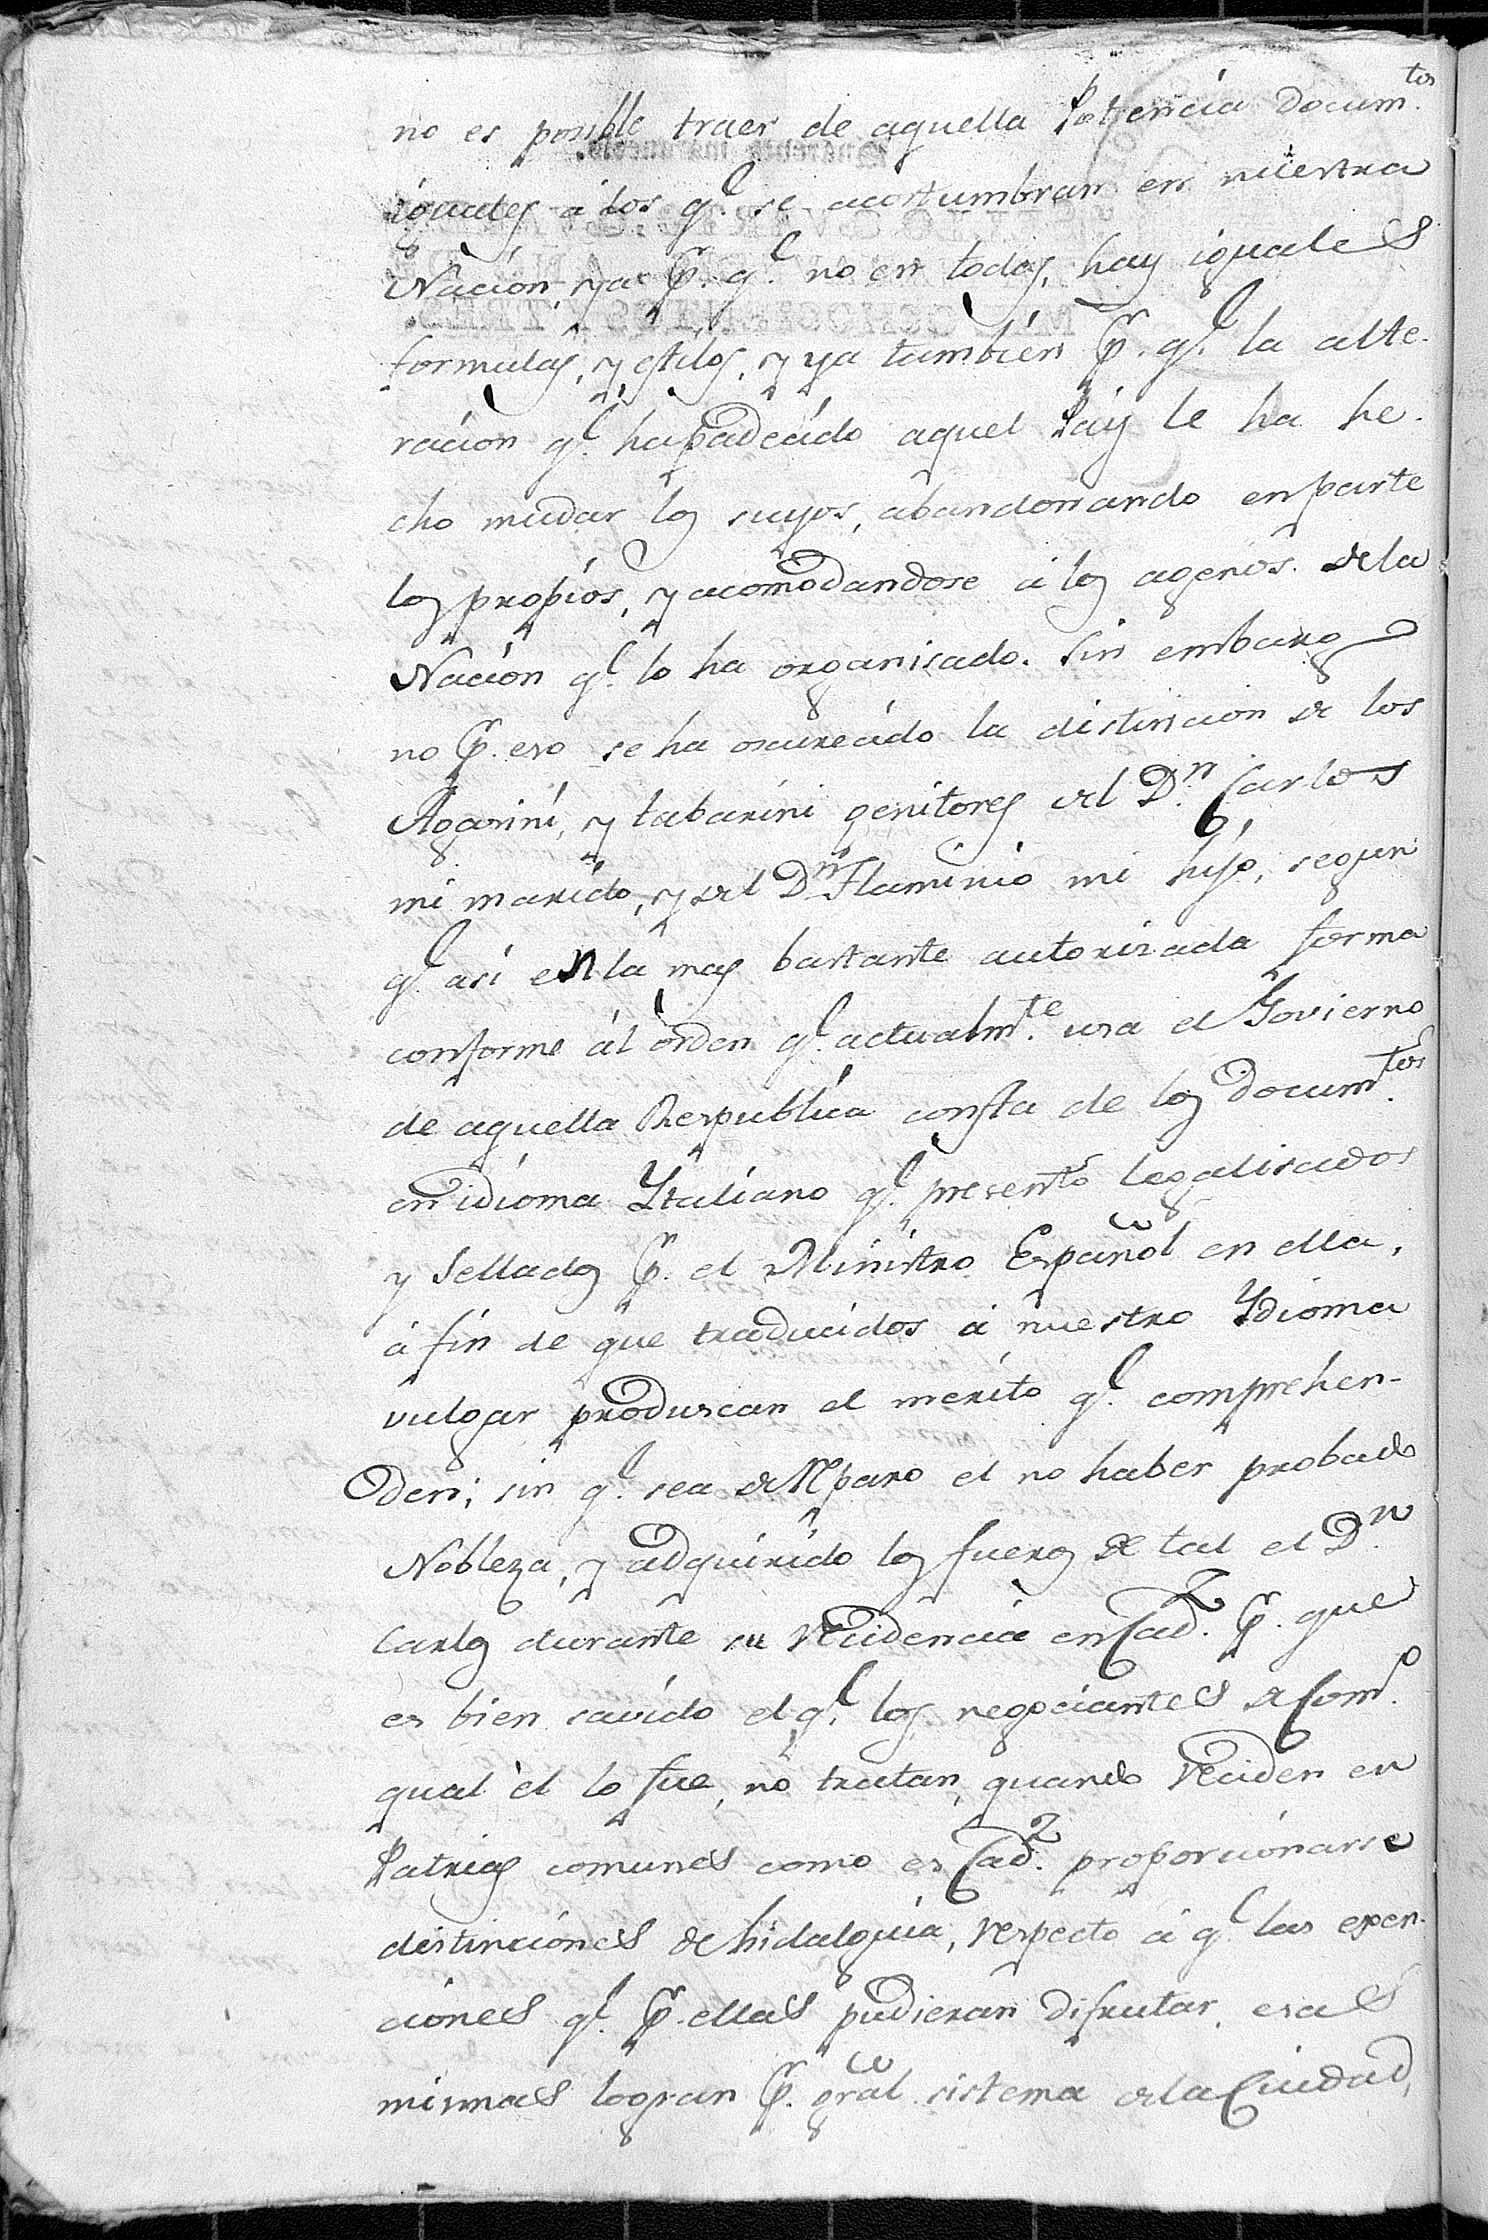 no es posible traer de aquella Potencia docum.tos
iguales à los q.e se acostumbran en nuestra
Nacion, ya p.r q.e no en todas, hay iguales
formulas, y estilos, y ya tambien p.r q.e la alte-
racion q.e ha padecido aquel Pais le ha he-
cho mudar los suyos, abandonando en parte
los propios, y acomodandose à los agenos de la
Nacion q.e lo ha organisado. Sin embargo
no p.r eso se ha oscurecido la distincion de los
y tabarini genitores del D.n Carlos
mi marido, y del D.n Flaminio mi hijo, segun
q.e asi en la mas bastante autorizada forma
conforme al orden q.e actualm.te usa el Govierno
de aquella Respublica consta de los docum.tos
en idioma Ytaliano q.e presento legalisados
y Sellados p.r el Ministro Español en ella,
à fin de que traducidos à nuestro Ydioma
vulgar produscan el merito q.e comprehen-
den; sin q.e sea de Reparo el no haber probado
Nobleza, y adquirido los fueros de tal el D.n
Carlos durante su Recidencia en Cad.z p.r que
es bien savido el q.e los negociantes de Com.o
qual èl lo fue, no tratan, quando Reciden en
Patrias comunes como es Cad.z proporcionarse
distinciones de hidalguia, Respecto à q.e las exen-
ciones q.e p.r ellas pudieran difrutar, esas
mismas logran p.r gral sistema de la Ciudad,
Quarenta maravedis.
SELLO QVARTO, QVAREN
MIL OCHOCIENTOS Y TRES.